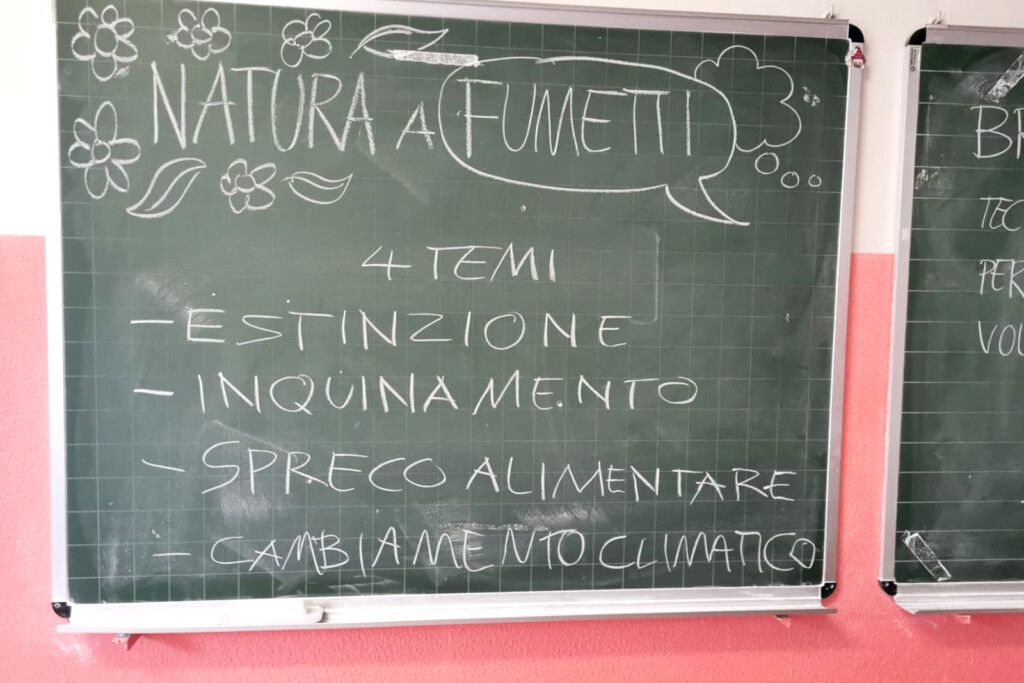 NATURA A FUMETTI
4 TEMI
- ESTINZIONE
- INQUINAMENTO
- SPRECO ALIMENTARE
- CAMBIAMENTO CLIMATICO
TEC
PER
VOL